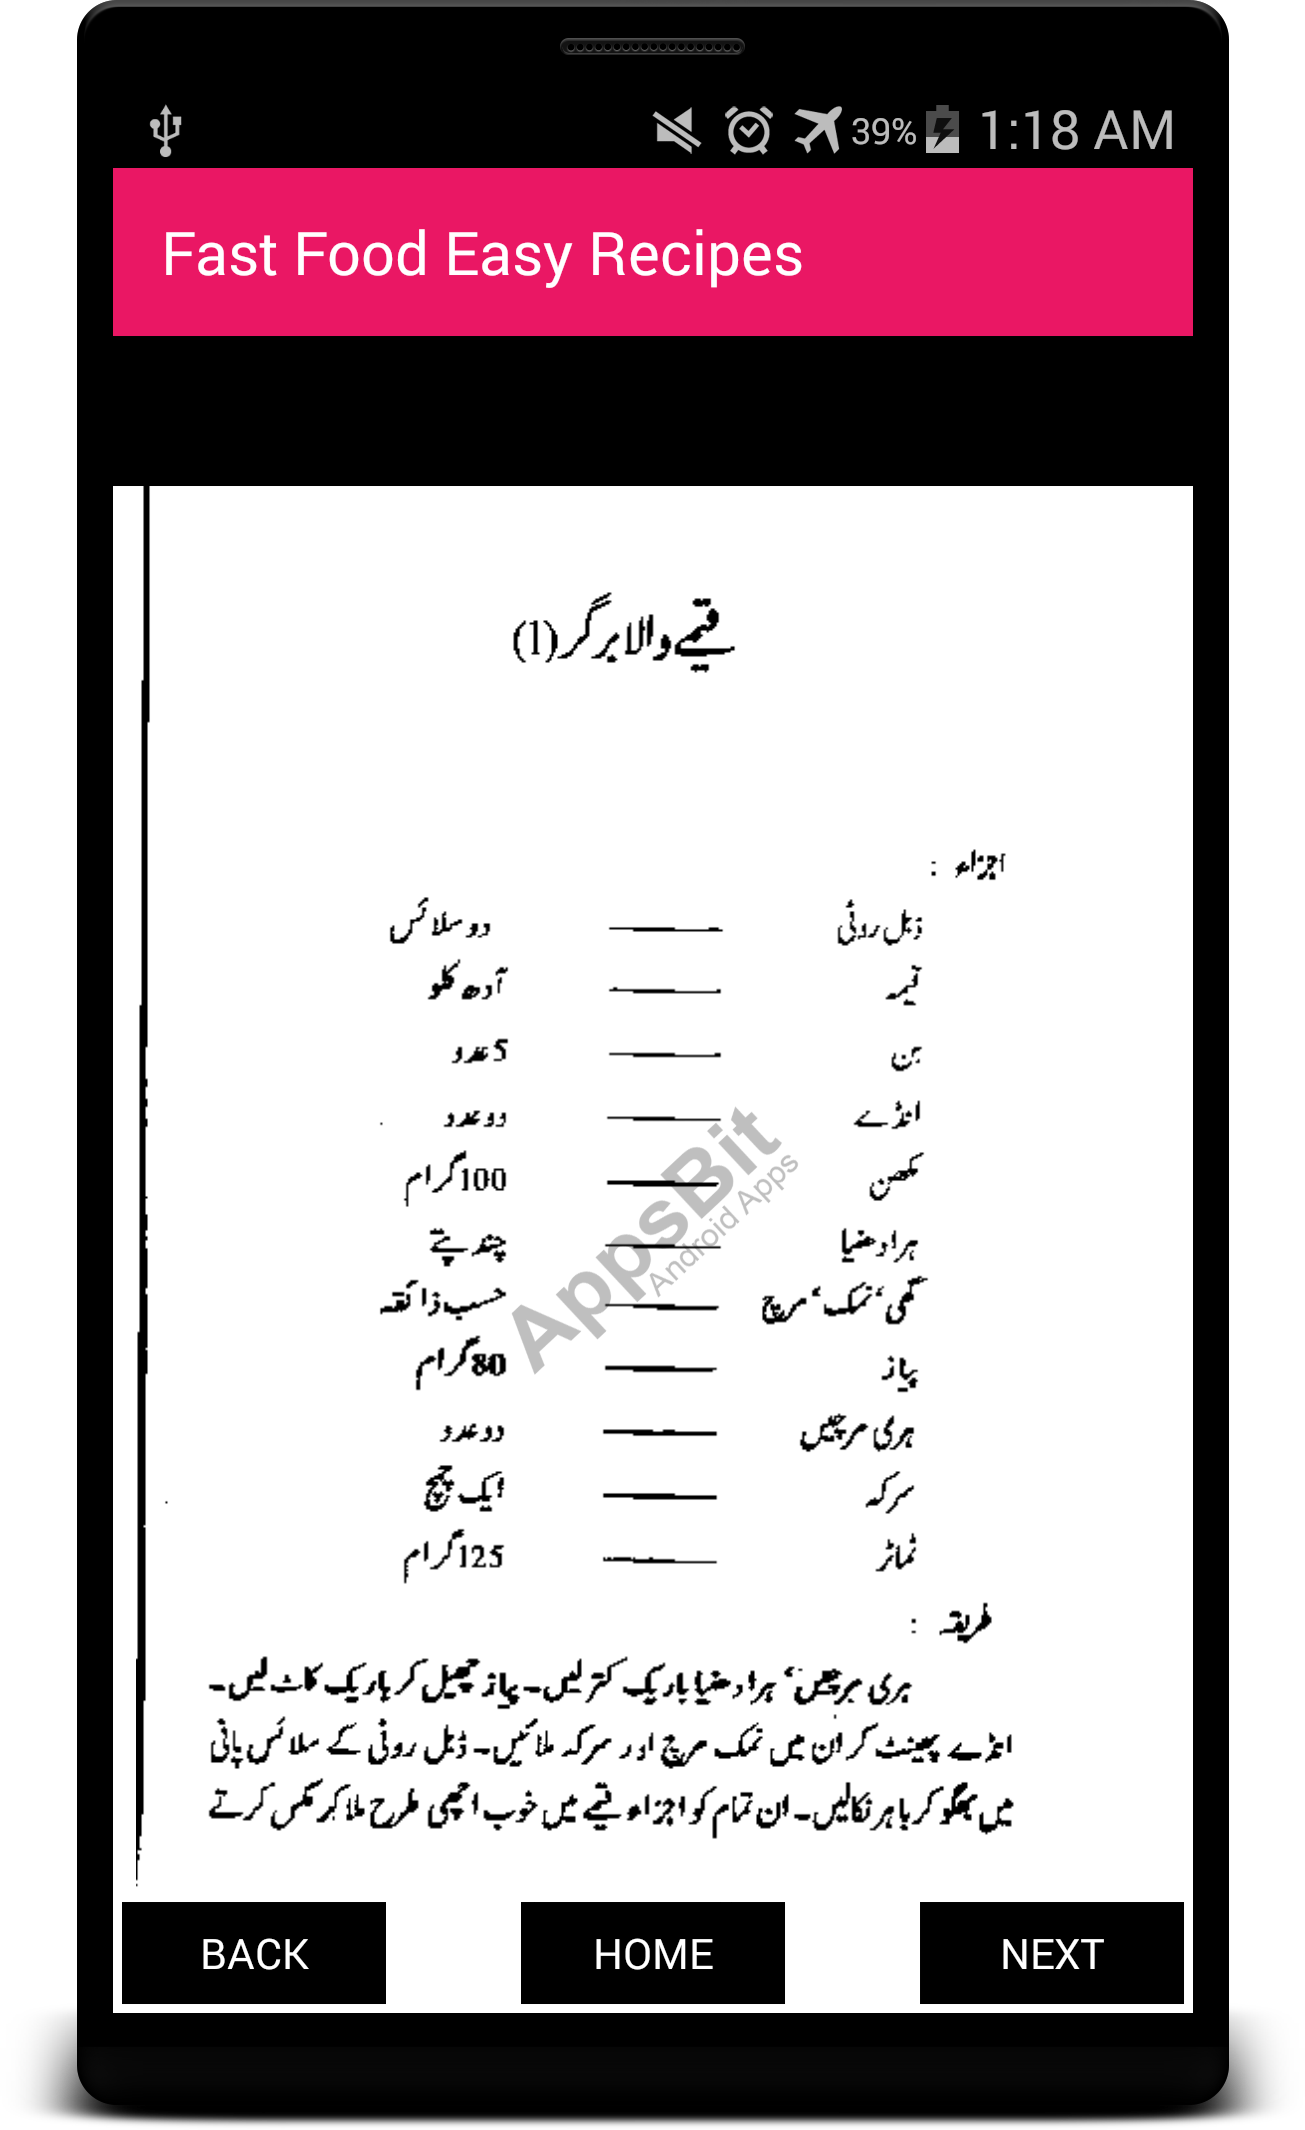 39% 1:18 AM
Fast Food Easy Recipes
قیمے والا برگر (1)
اجزاء :
ڈبل روٹی —— دو سلائس
قیمہ —— آدھ کلو
بن —— 5 عدد
انڈے —— دو عدد
مکھن —— 100 گرام
ہرا دھنیا —— چند پتے
گھی، نمک، مرچ —— حسب ذائقہ
پیاز —— 80 گرام
ہری مرچیں —— دو عدد
سرکہ —— ایک چمچ
ٹماٹر —— 125 گرام
AppsBit
Android Apps
طریقہ :
ہری مرچیں، ہرا دھنیا باریک کتر لیں۔ پیاز چھیل کر باریک کاٹ لیں۔
انڈے پھینٹ کر ان میں نمک مرچ اور سرکہ ملائیں۔ ڈبل روٹی کے سلائس پانی
میں بھگو کر باہر نکالیں۔ ان تمام کو اجزاء قیمے میں خوب اچھی طرح ملا کر مکس کرتے
BACK HOME NEXT